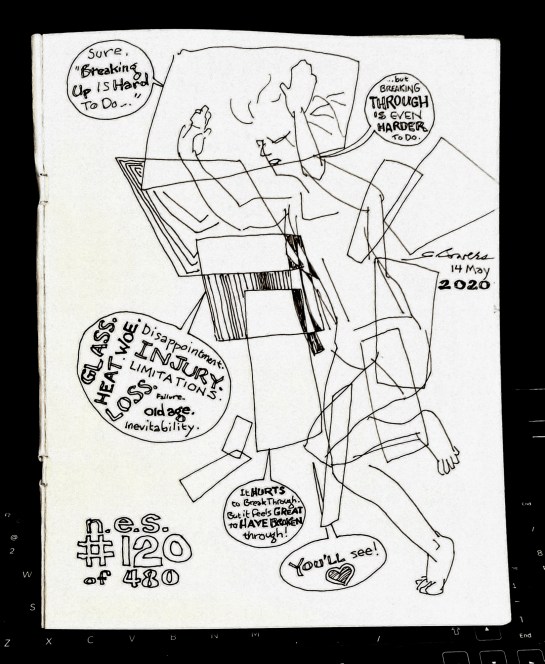 Sure.
"Breaking
Up IS Hard
To Do..."
...but
BREAKING
THROUGH
IS EVEN
HARDER
TO DO.
14 May
2020
GLASS.
HEAT. WOE.
Disappointment.
INJURY.
LIMITATIONS.
LOSS.
Failure.
old age.
inevitability.
It HURTS
to Break Through.
But it feels GREAT
to HAVE BROKEN
through!
You'LL see!
n.e.s.
#120
of 480
W
S
Z X C V B N M
End